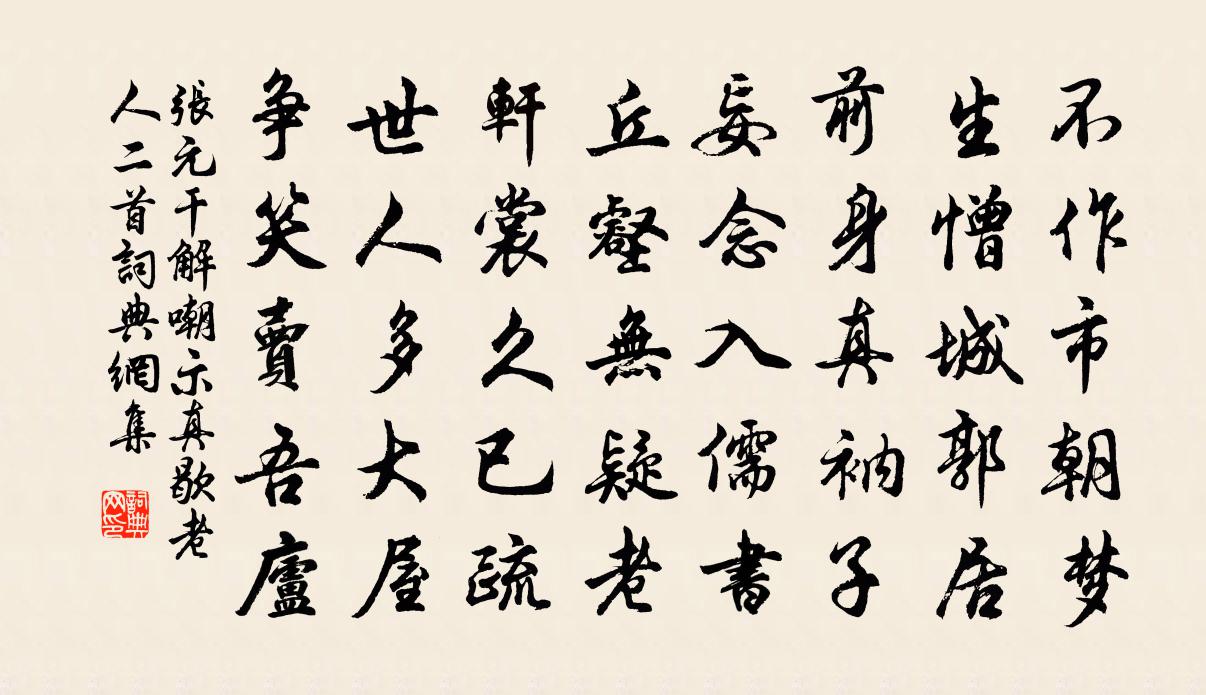 不作市朝梦
生憎城郭居
前身真衲子
妄念入儒書
丘壑無疑老
軒裳久已疏
世人多大屋
争笑賣吾廬
張元干解嘲示真歇老
人二首詞典網集
詞典
网印